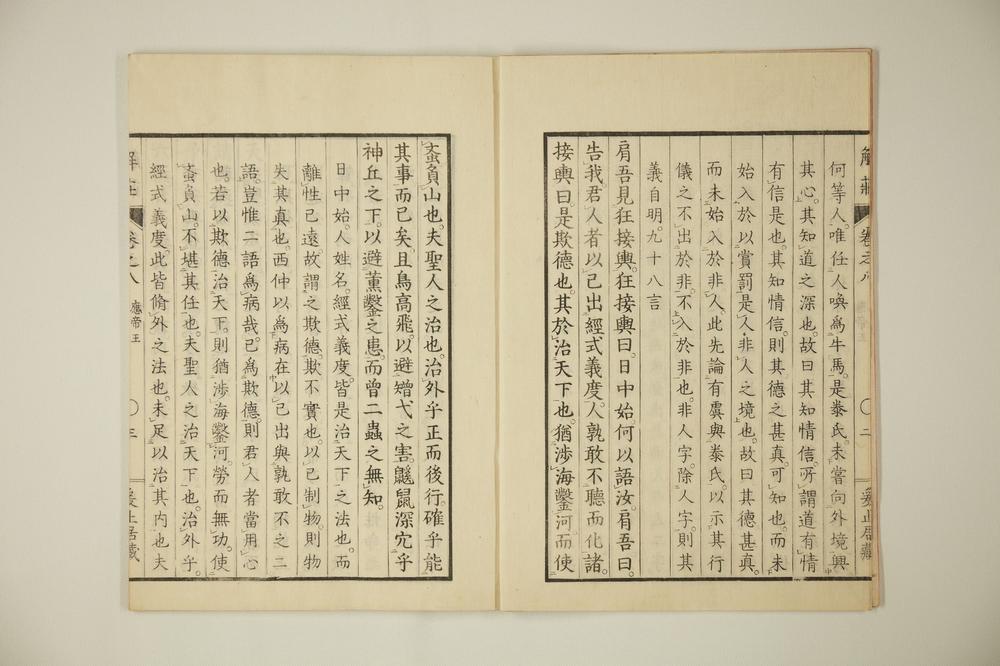 解莊 卷之八 〇 二 爰止居藏
何等人。唯任人喚爲牛馬。是泰氏未嘗向外境與
其心。其知道之深也。故曰其知情信。所謂道有情
有信是也。其知情信。則其德之甚真。可知也。而未
始入於以賞罰是人非人之境也。故曰其德甚真。
而未始入於非人。此先論有虞與泰氏。以示其行
儀之不出於非。不入於非也。非人字。除人字。則其
義自明。九十八言
肩吾見狂接輿。狂接輿曰。日中始。何以語汝。肩吾曰。
告我。君人者以己出經式義度。人孰敢不聽而化諸。
接輿曰。是欺德也。其於治天下也。猶涉海鑿河而使
蚉負山也。夫聖人之治也。治外乎。正而後行。確乎能
其事而已矣。且鳥高飛。以避矰弋之害。鼷鼠深穴乎
神丘之下。以避薰鑿之患。而曾二蟲之無知。
日中始。人姓名。經式義度。皆是治天下之法也。而
離性已遠。故謂之欺德。欺不實也。以己制物。則物
失其真也。西仲以爲病在以己出與孰敢不之二
語。豈惟二語爲病哉。已爲欺德。則君人者當用心
也。若以欺德治天下。則猶涉海鑿河。勞而無功。使
蚉負山。不堪其任也。夫聖人之治天下也。治外乎。
經式義度。此皆脩外之法也。未足以治其內也夫
解莊 卷之八 應帝王 〇 三 爰止居藏